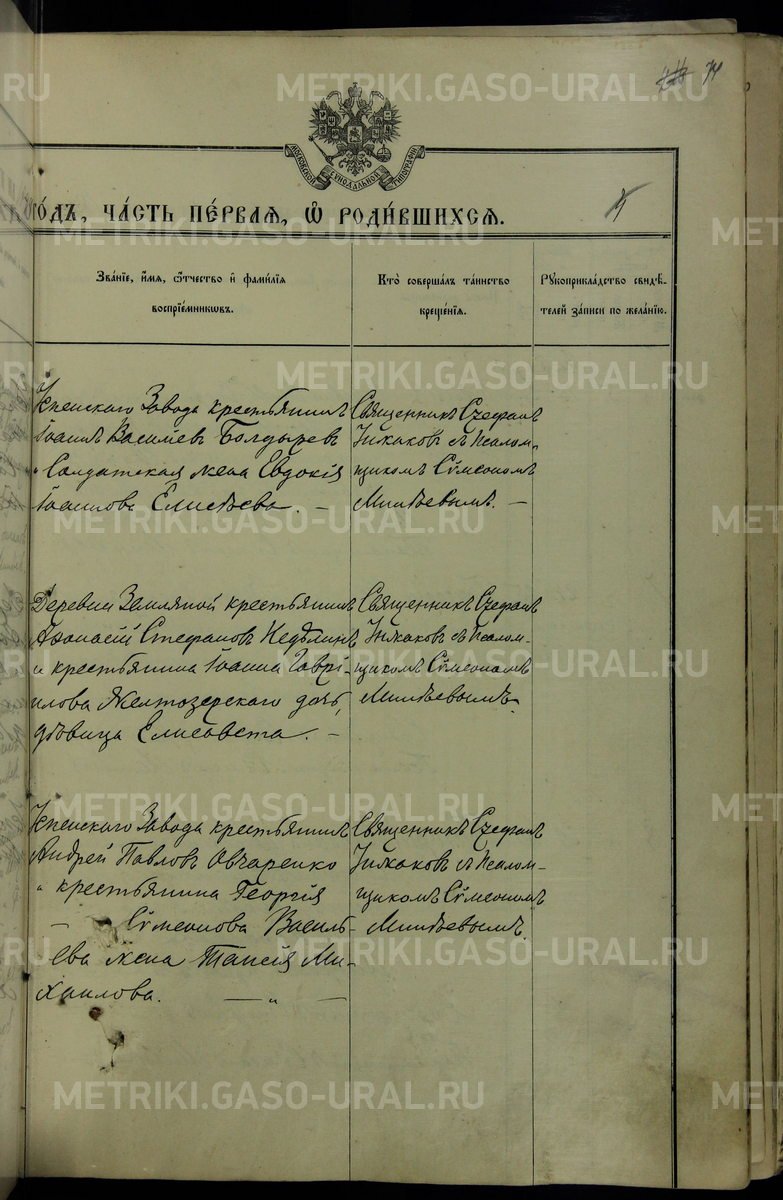 74
МОСКОВСКОЙ СѴНОДАЛЬНОЙ ТИПОГРАФІИ
го́дъ, ча́сть пе́рвая, ѡ҆ роди́вшихсѧ.
Зва́нїе, и҆́мѧ, ѻ҆́тчество и҆ фами́лїѧ
воспрїе́мникѡвъ.
Кто̀ соверша́лъ та́инство
креще́нїѧ.
Рꙋкоприкла́дство свидѣ́-
телей за́писи по жела́нїю.
Завода крестьянинъ
Іоаннъ Васильевъ Болдыревъ
и Солдатская жена Евдокія
Іоаннова Елисѣева. —
Священникъ Стефанъ
съ Псалом-
щикомъ Сѵмеономъ
Деревни Земляной крестьянинъ
Афанасій Стефановъ Недѣлинъ
и крестьянина Іоанна Гаврі-
илова Желтозерскаго дочь,
дѣвица Елисавета. —
Священникъ Стефанъ
съ Псалом-
щикомъ Сѵмеономъ
Завода крестьянинъ
Андрей Павловъ Овчаренко
и крестьянина Георгія
— Сѵмеонова Василь-
ева жена Таисія Ми-
хаилова. — „ —
Священникъ Стефанъ
съ Псалом-
щикомъ Сѵмеономъ
METRIKI.GASO-URAL.RU